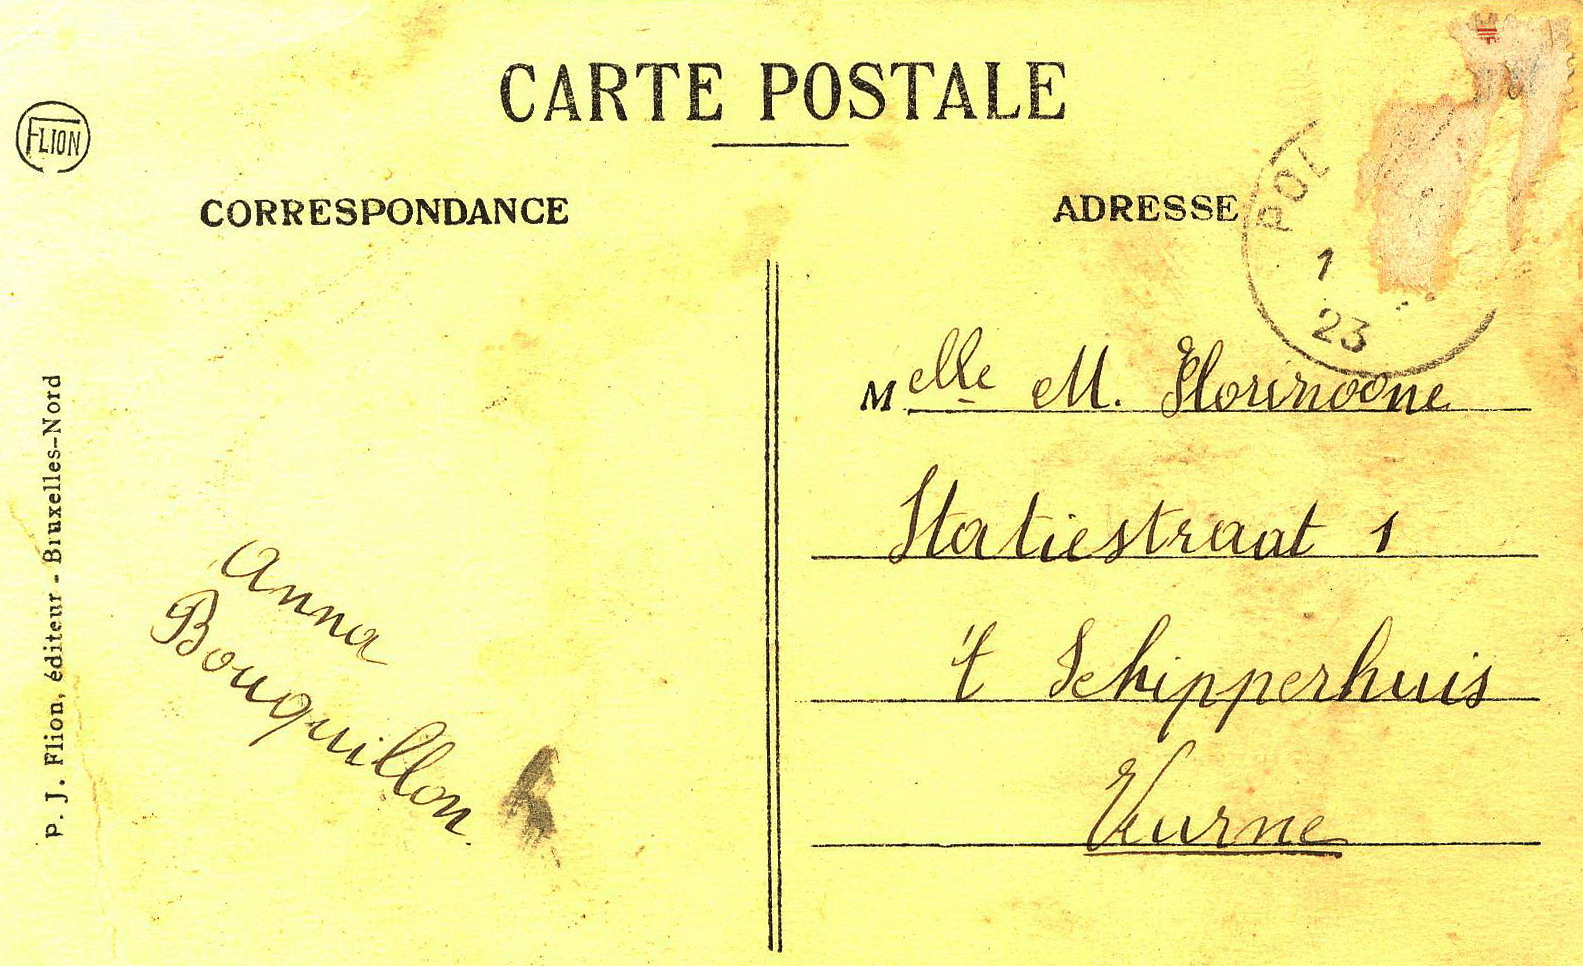 CARTE POSTALE
FLION
CORRESPONDANCE
ADRESSE
POL
1
23
Melle M. Florizoone
Statiestraat 1
't Schipperhuis
Veurne
Anna
Bouquillon
P. J. Flion, éditeur - Bruxelles-Nord